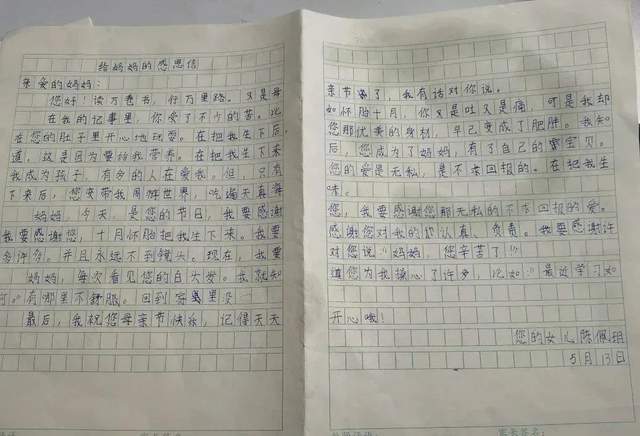 给妈妈的感恩信
亲爱的妈妈：
您好！读万卷书，行万里路。又是母
在我的记事里，你受了不少的苦。比
在您的肚子里开心地玩耍。在把我生下后，
道，这是因为要给我营养。在把我生下来
我成为孩子，有多的人在爱我。但，只有
下来后，您变带我周游世界，吃遍天真海
妈妈，今天，是您的节日，我要感谢
我要感谢您，十月怀胎把我生下来。我要
多许多。并且永远不到镜头。现在，我要
妈妈，每次看见您的白大发。我就知
可。有哪里不舒服。回到家里没
最后，我祝您母亲节快乐，记得天天
亲节了，我有话对你说。
如怀胎十月，你又是吐又是痛，可是我却
您那优秀的身材，早已变成了肥胖。我知
后，您成为了妈妈，有了自己的宝贝。
您的爱是无私，是不求回报的。在把我生
味。
您，我要感谢您那无私的不求回报的爱。
感谢您对我的认真、负责。我要感谢许
对您说“妈妈，您辛苦了”
道您为我操心了许多，比如“最近学习如
开心哦！
您的女儿陈佩
5月13日